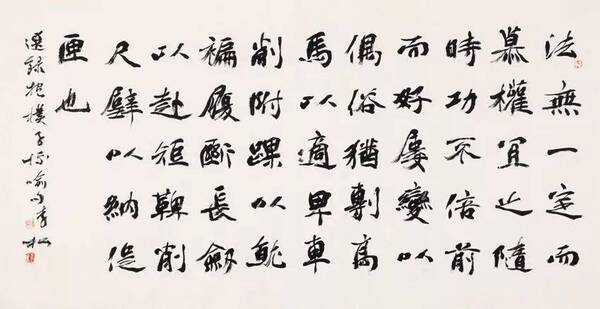 法無一定而
慕權宜之隨
時功不倍前
而好屢變以
偶俗猶剸高
馬以適卑車
削附踝以就
褊履斷長劍
以赴短鞞削
尺璧以納促
匣也
選錄抱樸子喻句